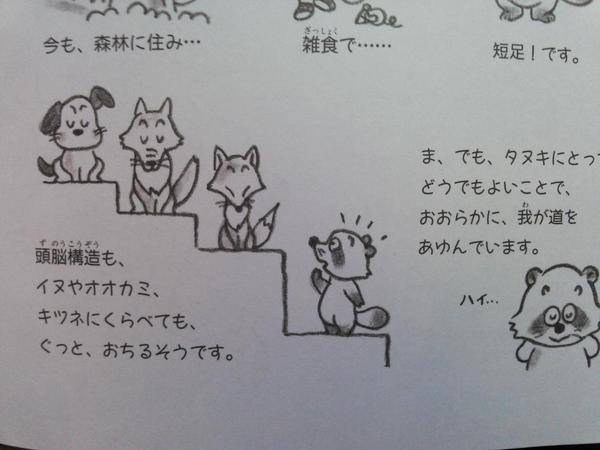 今も、森林に住み…
雑食で……
ざっしょく
短足！です。
頭脳構造も、
ずのうこうぞう
イヌやオオカミ、
キツネにくらべても、
ぐっと、おちるそうです。
ま、でも、タヌキにとっ
どうでもよいことで、
おおらかに、我が道を
わ
あゆんでいます。
ハイ…